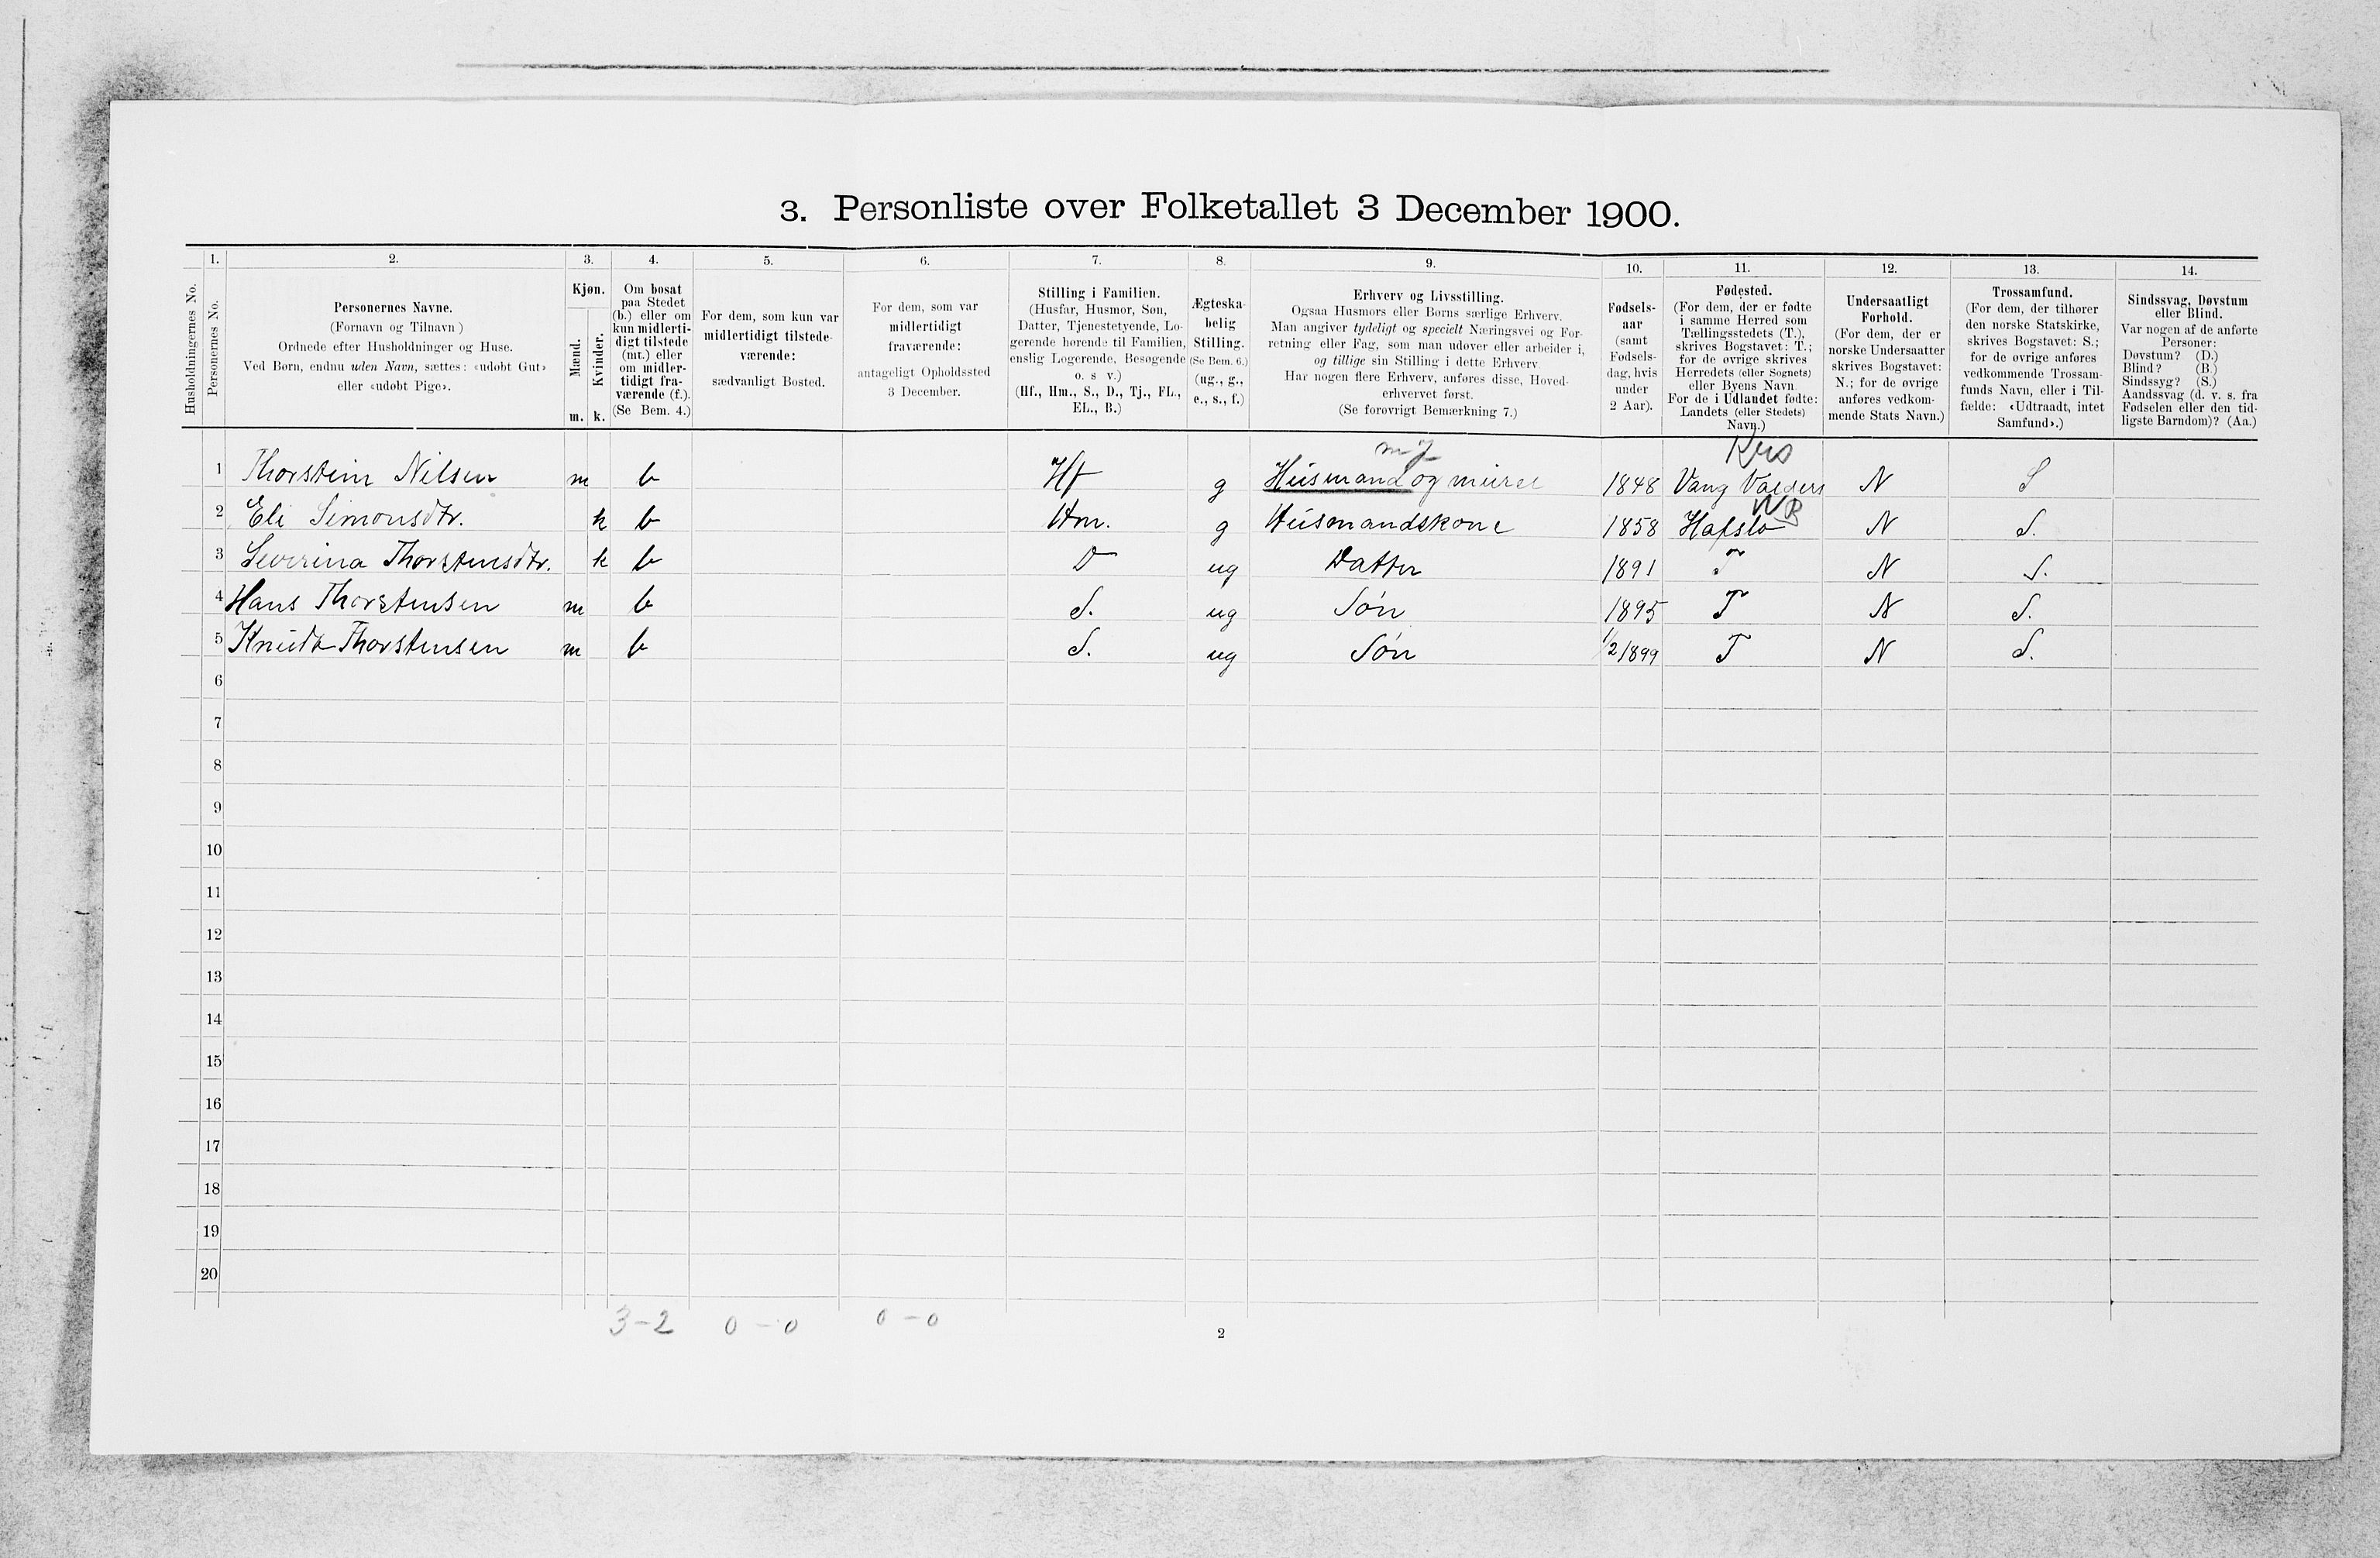 3. Personliste over Folketallet 3 December 1900.
1. 2. 3. 4. 5. 6. 7. 8. 9. 10. 11. 12. 13. 14.
Husholdningernes No.
Personernes No.
Personernes Navne.
(Fornavn og Tilnavn)
Ordnede efter Husholdninger og Huse.
Ved Børn, endnu uden Navn, sættes: «udøbt Gut»
eller «udøbt Pige».
Kjøn.
Mænd.
Kvinder.
m. k.
Om bosat
paa Stedet
(b.) eller om
kun midlerti-
digt tilstede
(mt.) eller
om midler-
tidigt fra-
værende (f.).
(Se Bem. 4.)
For dem, som kun var
midlertidigt tilstede-
værende:
sædvanligt Bosted.
For dem, som var
midlertidigt
fraværende:
antageligt Opholdssted
3 December.
Stilling i Familien.
(Husfar, Husmor, Søn,
Datter, Tjenestetyende, Lo-
gerende hørende til Familien,
enslig Logerende, Besøgende
o. s v.)
(Hf., Hm., S., D., Tj., FL.,
EL., B.)
Ægteska-
belig
Stilling.
(Se Bem. 6.)
(ug., g.,
e., s., f.)
Erhverv og Livsstilling.
Ogsaa Husmors eller Børns særlige Erhverv.
Man angiver tydeligt og specielt Næringsvei og For-
retning eller Fag, som man udøver eller arbeider i,
og tillige sin Stilling i dette Erhverv.
Har nogen flere Erhverv, anføres disse, Hoved-
erhvervet først.
(Se forøvrigt Bemærkning 7.)
Fødsels-
aar
(samt
Fødsels-
dag, hvis
under
2 Aar).
Fødested.
(For dem, der er fødte
i samme Herred som
Tællingsstedets (T.),
skrives Bogstavet: T.;
for de øvrige skrives
Herredets (eller Sognets)
eller Byens Navn
For de i Udlandet fødte:
Landets (eller Stedets)
Navn.)
Undersaatligt
Forhold.
(For dem, der er
norske Undersaatter
skrives Bogstavet:
N.; for de øvrige
anføres vedkom-
mende Stats Navn.)
Trossamfund.
(For dem, der tilhører
den norske Statskirke,
skrives Bogstavet: S.;
for de øvrige anføres
vedkommende Trossam-
funds Navn, eller i Til-
fælde: «Udtraadt, intet
Samfund».)
Sindssvag, Døvstum
eller Blind.
Var nogen af de anførte
Personer:
Døvstum? (D.)
Blind? (B.)
Sindssyg? (S.)
Aandssvag (d. v. s. fra
Fødselen eller den tid-
ligste Barndom)? (Aa.)
1 Thorstein Nilsen m b Hf g Husmand og murer 1848 Vang Valders N S
2 Eli Simonsdtr. k b Hm. g Husmandskone 1858 Hafslo N S.
3 Severina Thorstensdtr. k b D ug Datter 1891 T N S.
4 Hans Thorstensen m b S. ug Søn 1895 T N S.
5 Knudt Thorstensen m b S. ug Søn 1/2 1899 T N S.
6
7
8
9
10
11
12
13
14
15
16
17
18
19
20
3-2 0-0 0-0
2